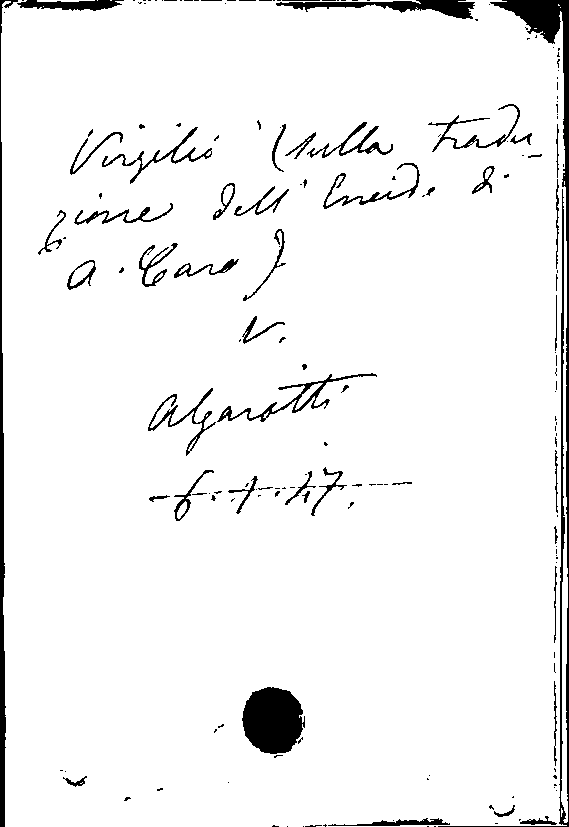 Virgilio (sulla tradu-
zione dell'Eneide di
A. Caro)
V.
Algarotti
6.1.47.